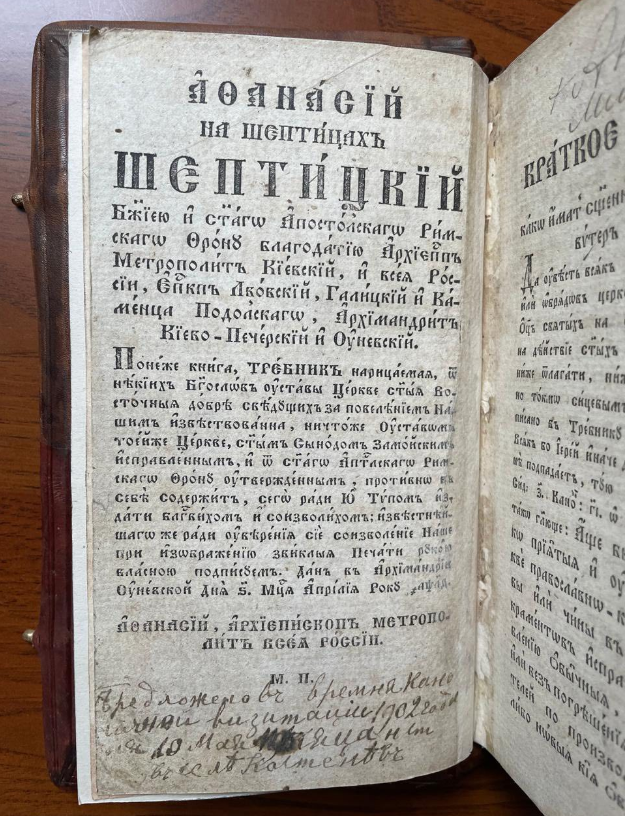 АѲАНА́СІЙ
НА ШЕПТИ́ЦАХЪ
ШЕПТИ́ЦКІЙ
Бж҃їею и҆ ст҃а́гѡ А҆посто́лскагѡ Ри́м-
скагѡ Ѳро́нꙋ благода́тїю А҆рхїеп҃пъ
Метрополи́тъ Кі́евскїй, и҆ всея̀ Рос-
сі́и, Е҆п҃кпъ Льво́вскїй, Га́лицкїй и҆ Ка-
ме́нца Подолскагѡ, А҆рхїмандри́тъ
Кїево-Пече́рскїй и҆ Оу҆не́вскїй.
Поне́же кни́га, ТРЕ́БНИКЪ нарица́емая, ѿ
нѣ́кїихъ Бг҃осло́въ оу҆ста́вы Це́ркве ст҃ы́я Во-
сто́чныя до́брѣ свѣ́дꙋщихъ за повелѣ́нїемъ На-
шимъ и҆звѣ́ствованна, ничто́же Оу҆ста́вомъ
тоѐйже Це́ркве, ст҃ы́мъ Сѵно́домъ Замо́йскимъ
и҆спра́вленнымъ, и҆ ѿ ст҃а́гѡ А҆пт҃лскагѡ Ри́м-
скагѡ Ѳро́нꙋ оу҆твержде́ннымъ, проти́вно въ
себѣ̀ содержи́тъ, сегѡ̀ ра́ди ю҆̀ Ту́помъ и҆з-
да́ти блг҃ви́хомъ и҆ соизво́лихомъ: и҆звѣ́стнѣй-
шагѡ же ра́ди оу҆вѣ́ренїя сїѐ соизволе́нїе На́ше
при и҆зѡбраже́нїю звы́клыя Печа́ти рꙋко́ю
вла́сною подпи́сꙋемъ. Да́нъ въ А҆рхїмандрі́и
Оу҆не́вской Дня̀ ѕ҃. Мц҃а А҆прі́лїя Ро́кꙋ
АѲАНА́СІЙ, А҆РХІЕПИ́СКОПЪ МЕТРОПО-
ЛИ́ТЪ ВСЕЯ̀ РО́ССІИ.
М. П.
Предложено въ время Кано
нычной визитаціи 1902 года
10 Мая
въ селѣ
КРА́ТКОЕ
ка́кѡ и҆́мать сщ҃е́нни
Да оу҆вѣ́сть всякъ
и҆лѝ ѡ҆бря́дѡвъ церко
Оц҃ъ святы́хъ на
на дѣ́йствїе ст҃ы́хъ
ни́же ѿлага́ти, ни́ж
но то́кмѡ сицевы́мъ
писано въ Тре́бникꙋ
подпада́етъ, то́ю
та́кѡ гл҃юще: А҆́ще
кѡ прїя́тыя и҆ оу҆
квѐ правосла́вно-к
вы и҆лѝ чи́ны въ
краме́нтѡвъ и҆спра
вле́нїю ѡ҆бы́чныя,
и҆лѝ без̾ погрѣше́нїя
те́лей по произво
ли́бо но́выя кі́я